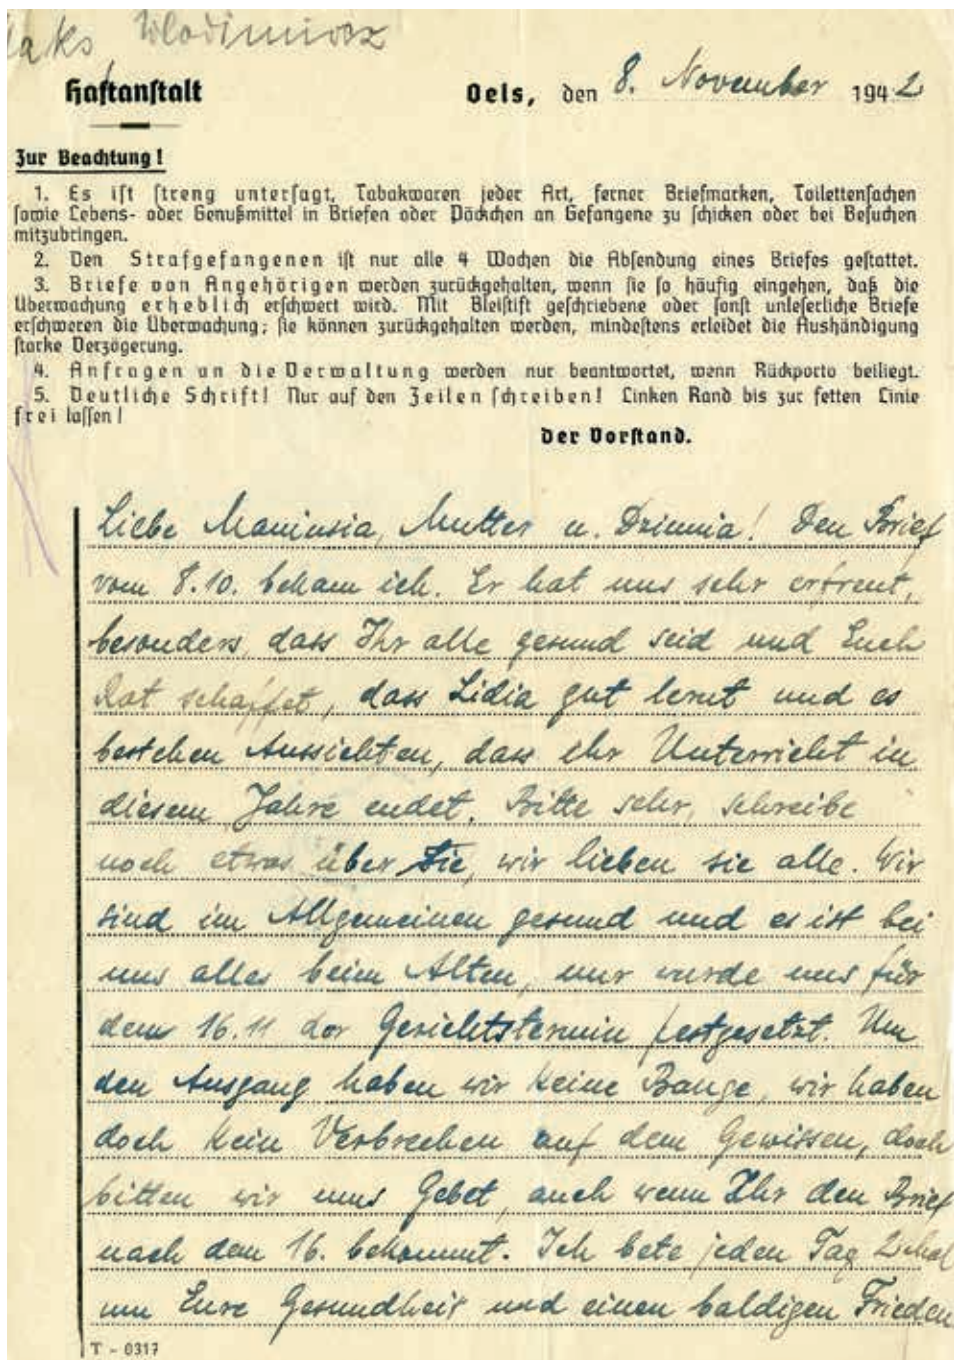 Włodzimierz
Haftanstalt
Oels, den 8. November 1942
Zur Beachtung!
1. Es ist streng untersagt, Tabakwaren jeder Art, ferner Briefmarken, Toilettensachen
sowie Lebens- oder Genußmittel in Briefen oder Päckchen an Gefangene zu schicken oder bei Besuchen
mitzubringen.
2. Den Strafgefangenen ist nur alle 4 Wochen die Absendung eines Briefes gestattet.
3. Briefe von Angehörigen werden zurückgehalten, wenn sie so häufig eingehen, daß die
Überwachung erheblich erschwert wird. Mit Bleistift geschriebene oder sonst unleserliche Briefe
erschweren die Überwachung; sie können zurückgehalten werden, mindestens erleidet die Aushändigung
starke Verzögerung.
4. Anfragen an die Verwaltung werden nur beantwortet, wenn Rückporto beiliegt.
5. Deutliche Schrift! Nur auf den Zeilen schreiben! Linken Rand bis zur fetten Linie
frei lassen!
Der Vorstand.
Liebe Maniusia, Mutter u. Dziunia! Den Brief
vom 8.10. bekam ich. Er hat uns sehr erfreut,
besonders, dass Ihr alle gesund seid und Euch
Rat schaffet, dass Lidia gut lernt und es
bestehen Aussichten, dass ihr Unterricht in
diesem Jahre endet. Bitte sehr, schreibe
noch etwas über Sie, wir lieben sie alle. Wir
sind im Allgemeinen gesund und es ist bei
uns alles beim Alten, nur wurde uns für
dem 16.11 der Gerichtstermin festgesetzt. Um
den Ausgang haben wir keine Bange, wir haben
doch kein Verbrechen auf dem Gewissen, doch
bitten wir ums Gebet, auch wenn Ihr den Brief
nach dem 16. bekommt. Ich bete jeden Tag 2 mal
um Eure Gesundheit und einen baldigen Frieden
T - 0317